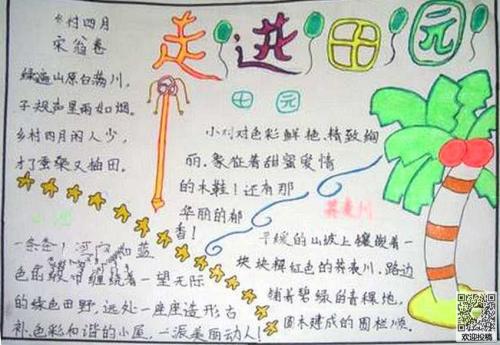 走进田园
乡村四月
宋 翁卷
绿遍山原白满川,
子规声里雨如烟。
乡村四月闲人少,
才了蚕桑又插田。
田 园
小对对色彩鲜艳、精致绚
丽、象征着甜蜜爱情
的木鞋!还有那
华丽的郁
香!
小 河
一条条!河 如 蓝
色的缎巾缠绕着一望无际
的绿色田野,远处一座座造形古
朴、色彩和谐的小屋,一派美丽动人!
荞麦川
平缓的山坡上镶嵌着一
块块粿红色的荞麦川,路边
铺着碧绿的青稞地,
圆木建成的围栏顺。
欢迎投稿